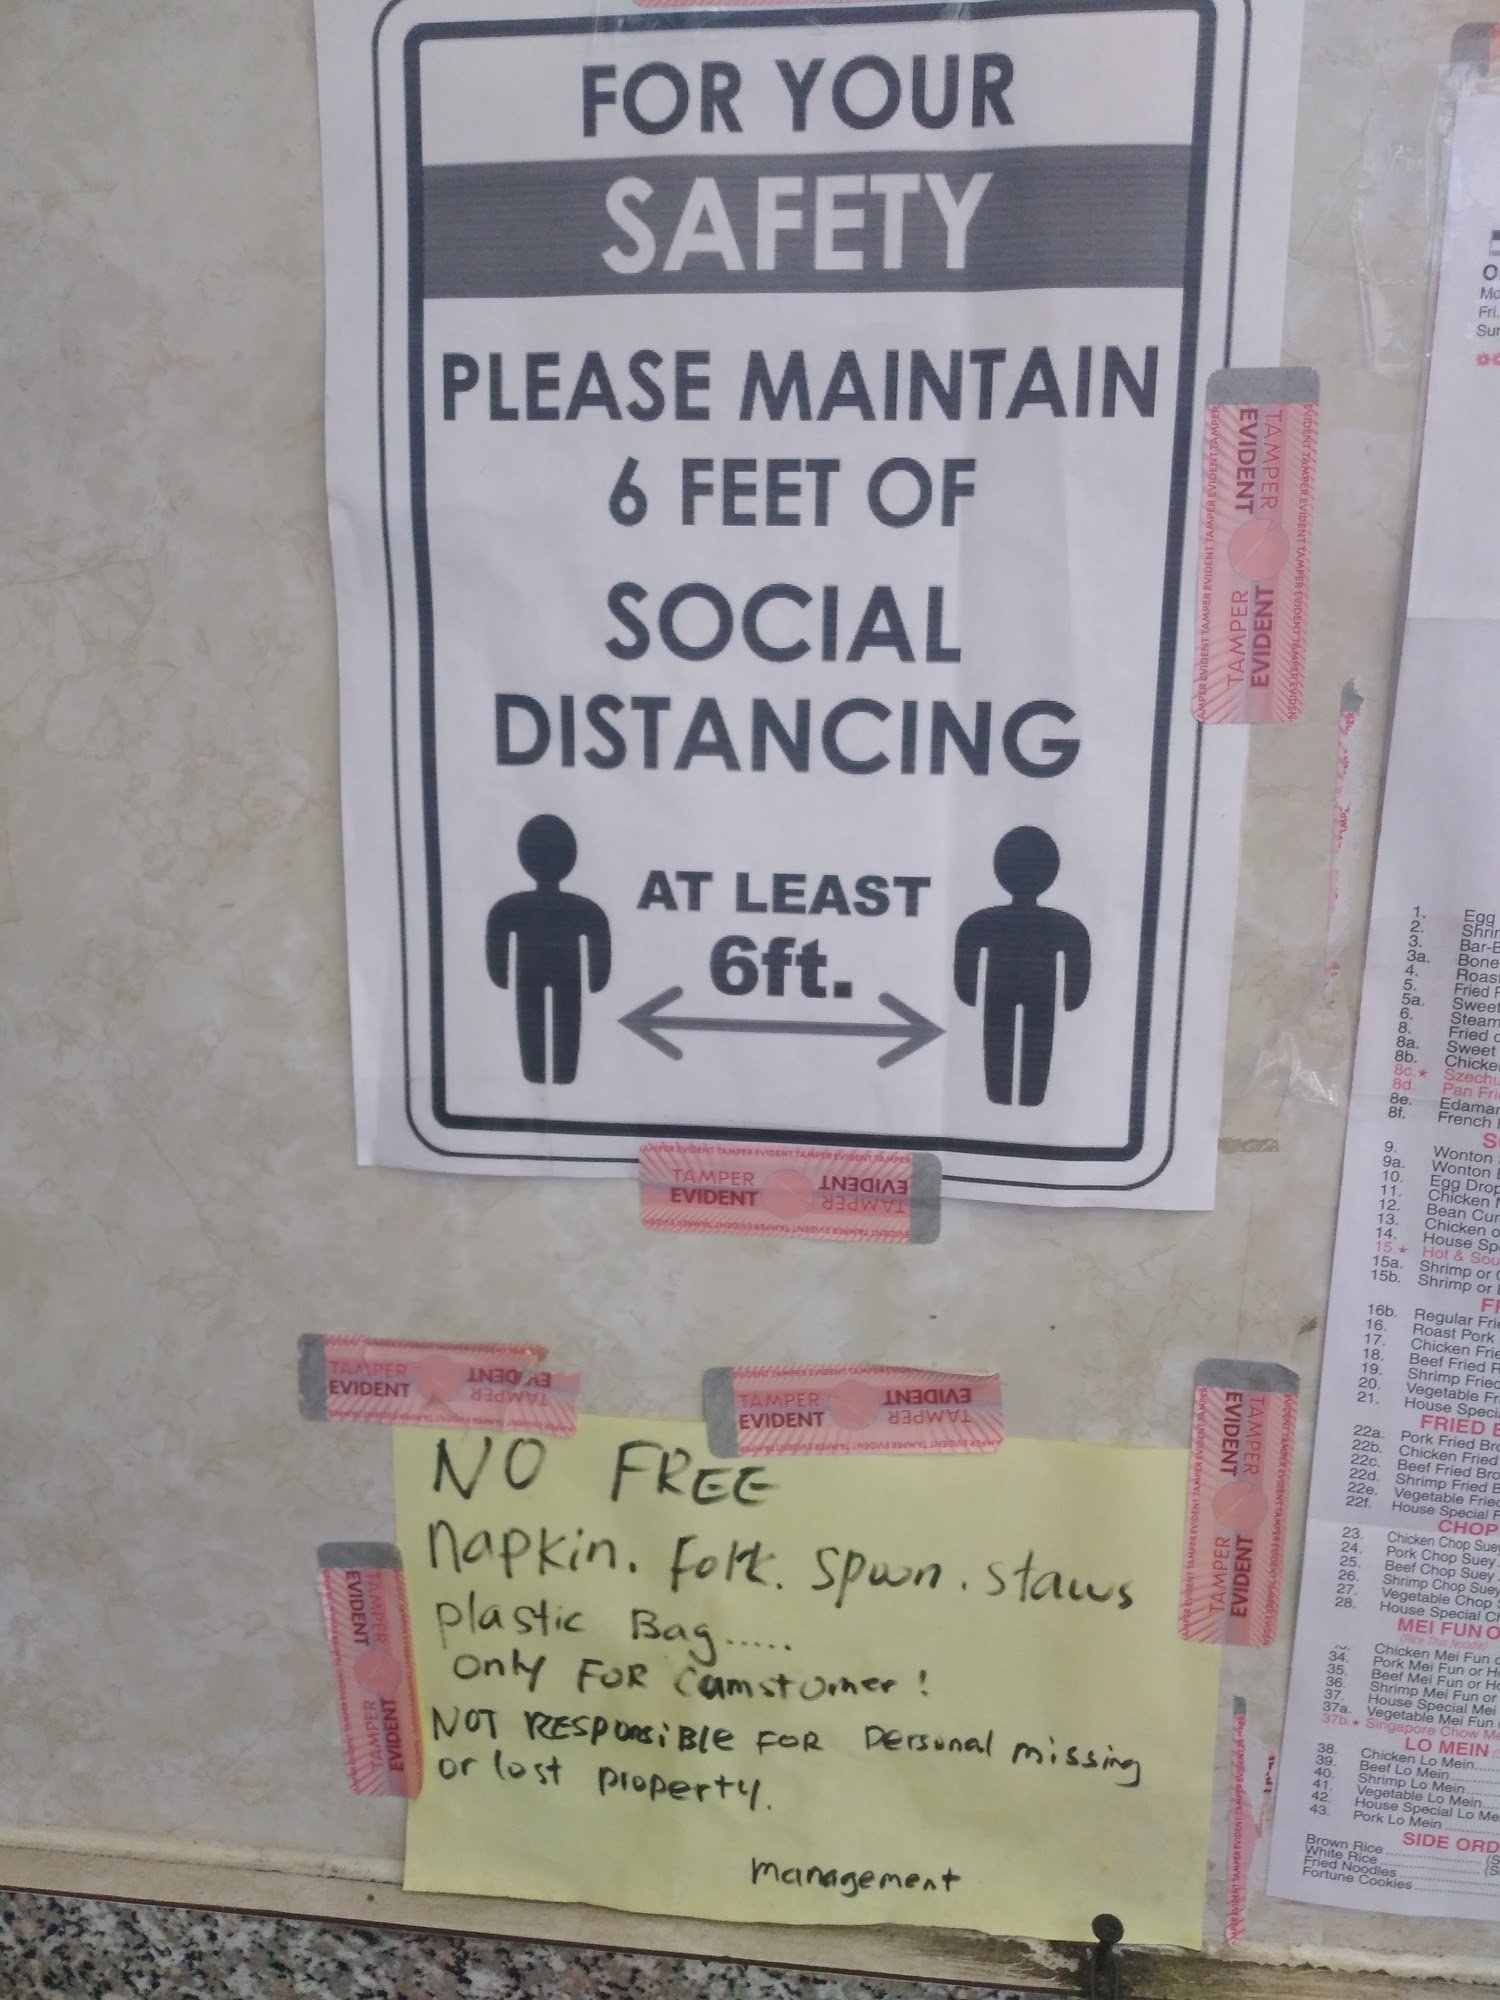 FOR YOUR
SAFETY
PLEASE MAINTAIN
6 FEET OF
SOCIAL
DISTANCING
AT LEAST
6ft.
TAMPER EVIDENT
TAMPER EVIDENT
TAMPER EVIDENT
TAMPER EVIDENT
TAMPER EVIDENT
TAMPER EVIDENT
TAMPER EVIDENT
TAMPER EVIDENT
TAMPER EVIDENT
TAMPER EVIDENT
TAMPER EVIDENT
TAMPER EVIDENT
NO FREE
napkin. fork. spwn. staws
plastic Bag.....
only FOR camstomer!
NOT RESPONSiBlE FOR personal missing
or lost property.
management
Fri.
1. Egg
2.
3.
3a. Bone
4. Roas
5. Fried
5a. Sweet
6. Steam
8. Fried
8a. Sweet
8b.
8c.★
8d. Pan
8e.
8f. French
9. Wonton
9a. Wonton
10. Egg
11. Chicken
12. Bean
13. Chicken
14. House
15.★ Hot &
15a. Shrimp or
15b. Shrimp or
16b. Regular
16. Roast Pork
17. Chicken
18. Beef Fried
19. Shrimp Fried
20. Vegetable
21. House
FRIED
22a. Pork Fried
22b. Chicken Fried
22c. Beef Fried
22d. Shrimp Fried
22e. Vegetable
22f. House Special
CHOP
23. Chicken Chop Suey
24. Pork Chop Suey
25. Beef Chop Suey
26. Shrimp Chop Suey
27. Vegetable Chop
28. House Special
MEI FUN O
(Rice Thin Noodle)
Chicken Mei Fun
34. Pork Mei Fun or
35. Beef Mei Fun or
36. Shrimp Mei Fun or
37. House Special Mei
37a. Vegetable Mei Fun
37b.★ Singapore Chow
LO MEIN
38. Chicken Lo Mein
39. Beef Lo Mein
40. Shrimp Lo Mein
41. Vegetable Lo Mein
42. House Special Lo
43. Pork Lo Mein
SIDE ORD
Brown Rice
White Rice
Fried Noodles
Fortune Cookies